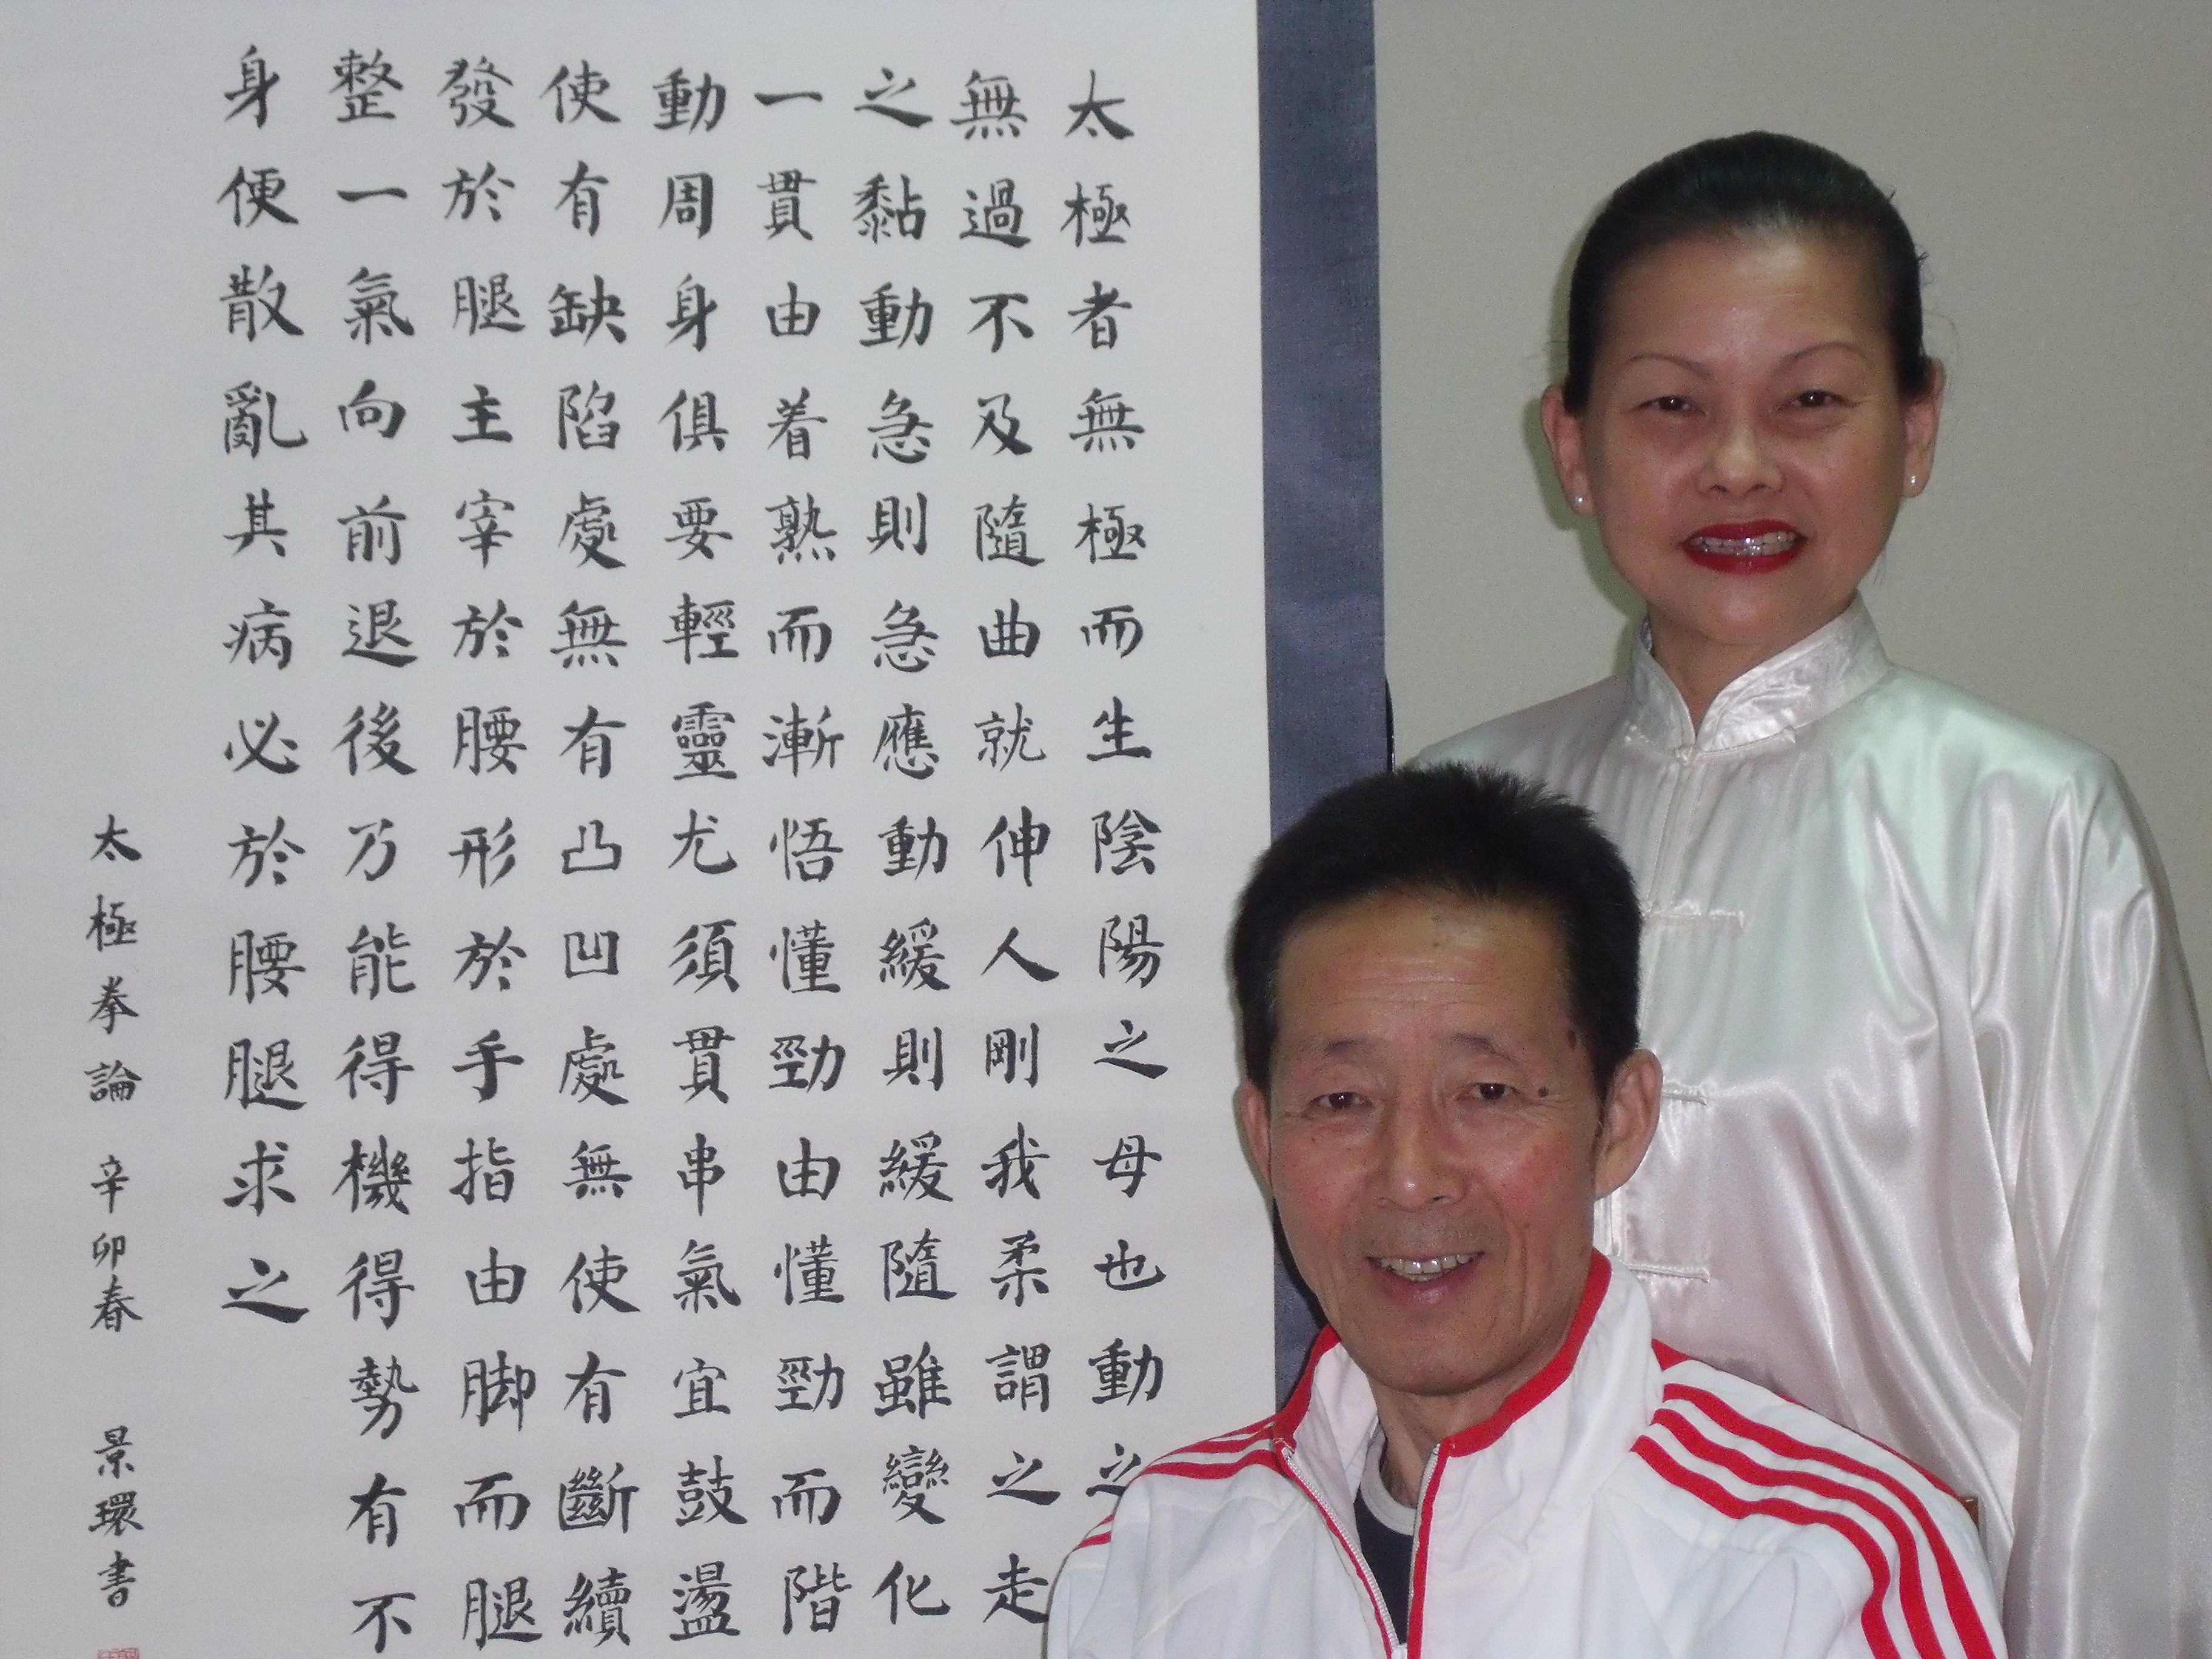 太極者無極而生陰陽之母也動之
無過不及隨曲就伸人剛我柔謂之走
之黏動急則急應動緩則緩隨雖變化
一貫由着熟而漸悟懂勁由懂勁而階
動周身俱要輕靈尤須貫串氣宜鼓盪
使有缺陷處無有凸凹處無使有斷續
發於腿主宰於腰形於手指由脚而腿
整一氣向前退後乃能得機得勢有不
身便散亂其病必於腰腿求之
太極拳論 辛卯春 景環書